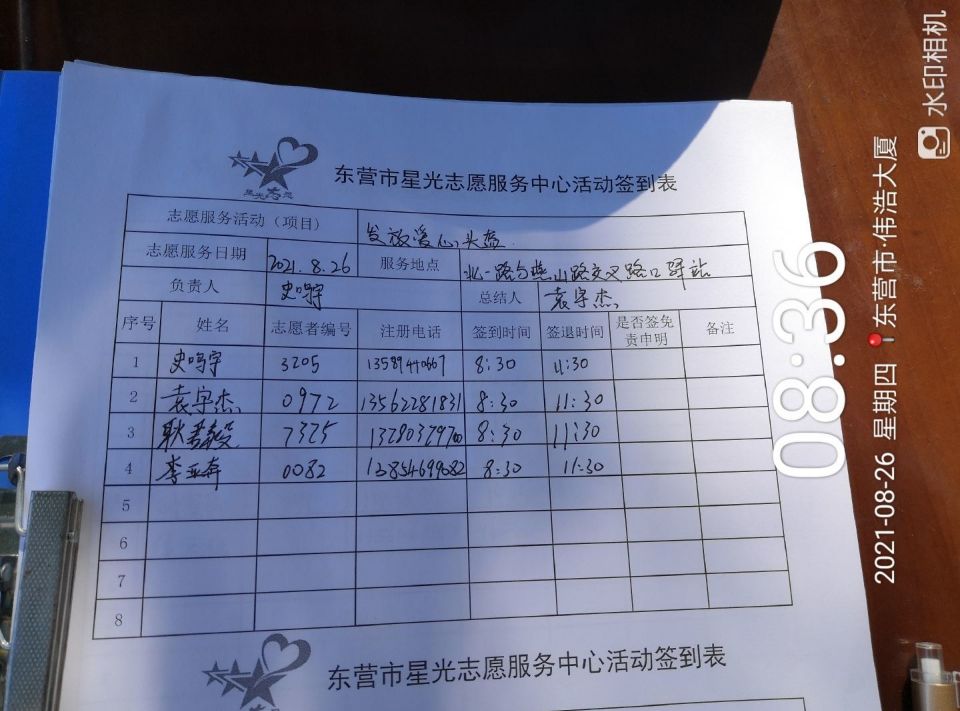 东营市星光志愿服务中心活动签到表
志愿服务活动（项目） 发放爱心头盔
志愿服务日期 2021.8.26 服务地点 北一路与燕山路交叉路口驿站
负责人 史鸣宇 总结人 袁字杰
序号 姓名 志愿者编号 注册电话 签到时间 签退时间 是否签免责申明 备注
1 史鸣宇 3205 8:30 11:30
2 袁字杰 0972 13562281831 8:30 11:30
3 耿若毅 7325 8:30 11:30
4 李亚奔 0082 13854699082 8:30 11:30
5
6
7
8
东营市星光志愿服务中心活动签到表
08:36
2021-08-26 星期四 东营市·伟浩大厦
水印相机